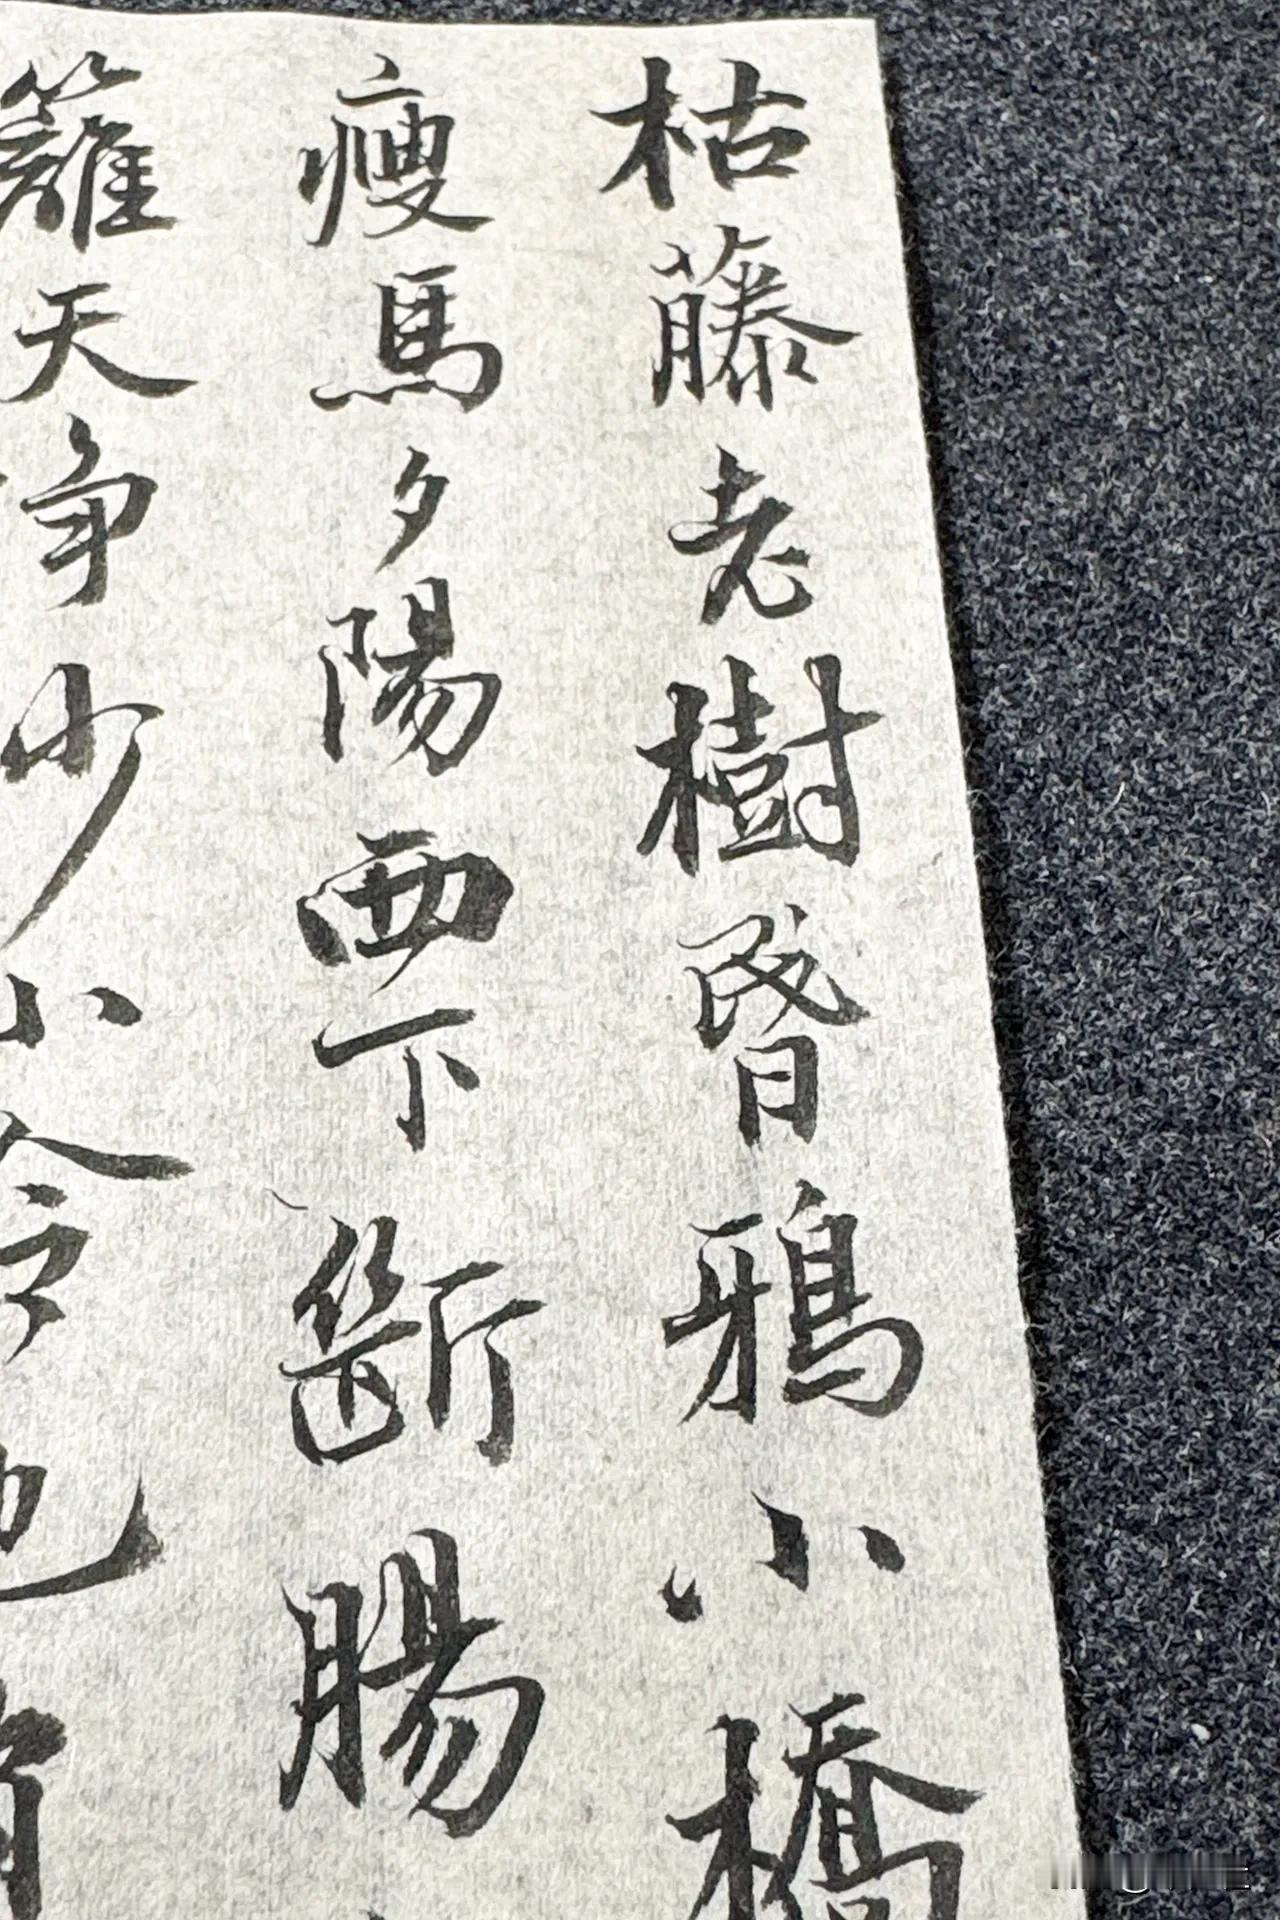 枯藤老樹昏鴉小橋
瘦馬夕陽西下斷腸
籬天争少小令